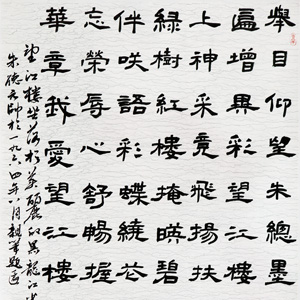 舉目仰望朱總墨
遍增異彩望江樓
上神采竟飛揚扶
綠樹紅樓掩暎碧
伴咲語彩蝶繞花
忘榮辱心舒暢握
華章我愛望江樓
望江樓坐落於美麗的黑龍江
朱德元帥於一九六四年八月親筆題匾